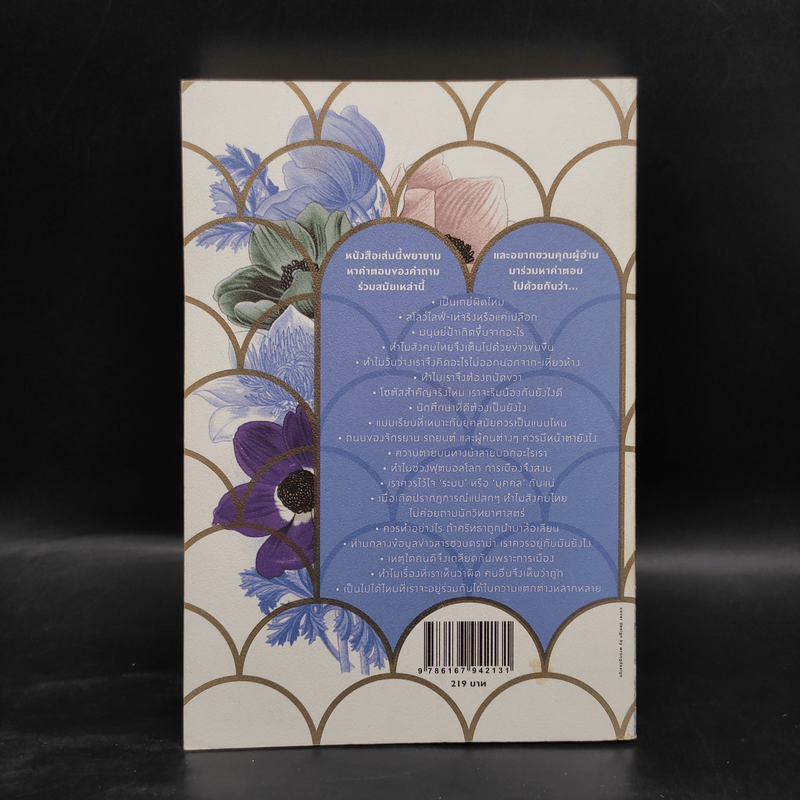 หนังสือเล่มนี้พยายาม
หาคำตอบของคำถาม
ร่วมสมัยเหล่านี้
และอยากชวนคุณผู้อ่าน
มาร่วมหาคำตอบ
ไปด้วยกันว่า...
• เป็นเกย์ผิดไหม
• สโลว์ไลฟ์-เท่จริงหรือแค่เปลือก
• มนุษย์ป้าเกิดขึ้นจากอะไร
• ทำไมสังคมไทยจึงเต็มไปด้วยข่าวข่มขืน
• ทำไมวันว่างเราจึงคิดอะไรไม่ออกนอกจาก-เที่ยวห้าง
• ทำไมเราจึงต้องถนัดขวา
• โซตัสสำคัญจริงไหม เราจะรับน้องกันยังไงดี
• นักศึกษาที่ดีต้องเป็นยังไง
• แบบเรียนที่เหมาะกับยุคสมัยควรเป็นแบบไหน
• ถนนของจักรยาน รถยนต์ และผู้คนต่างๆ ควรมีหน้าตายังไง
• ความตายบนทางม้าลายบอกอะไรเรา
• ทำไมช่วงฟุตบอลโลก การเมืองจึงสงบ
• เราควรไว้ใจ 'ระบบ' หรือ 'บุคคล' กันแน่
• เมื่อเกิดปรากฏการณ์แปลกๆ ทำไมสังคมไทย
ไม่ค่อยถามนักวิทยาศาสตร์
• ควรทำอย่างไร ถ้าศรัทธาถูกนำมาล้อเลียน
• ท่ามกลางข้อมูลข่าวสารชวนดราม่า เราควรอยู่กับมันยังไง
• เหตุใดคนดีจึงเกลียดกันเพราะการเมือง
• ทำไมเรื่องที่เราเห็นว่าผิด คนอื่นจึงเห็นว่าถูก
• เป็นไปได้ไหมที่เราจะอยู่ร่วมกันได้ในความแตกต่างหลากหลาย
cover design by wrongdesign
9 786167 942131
219 บาท